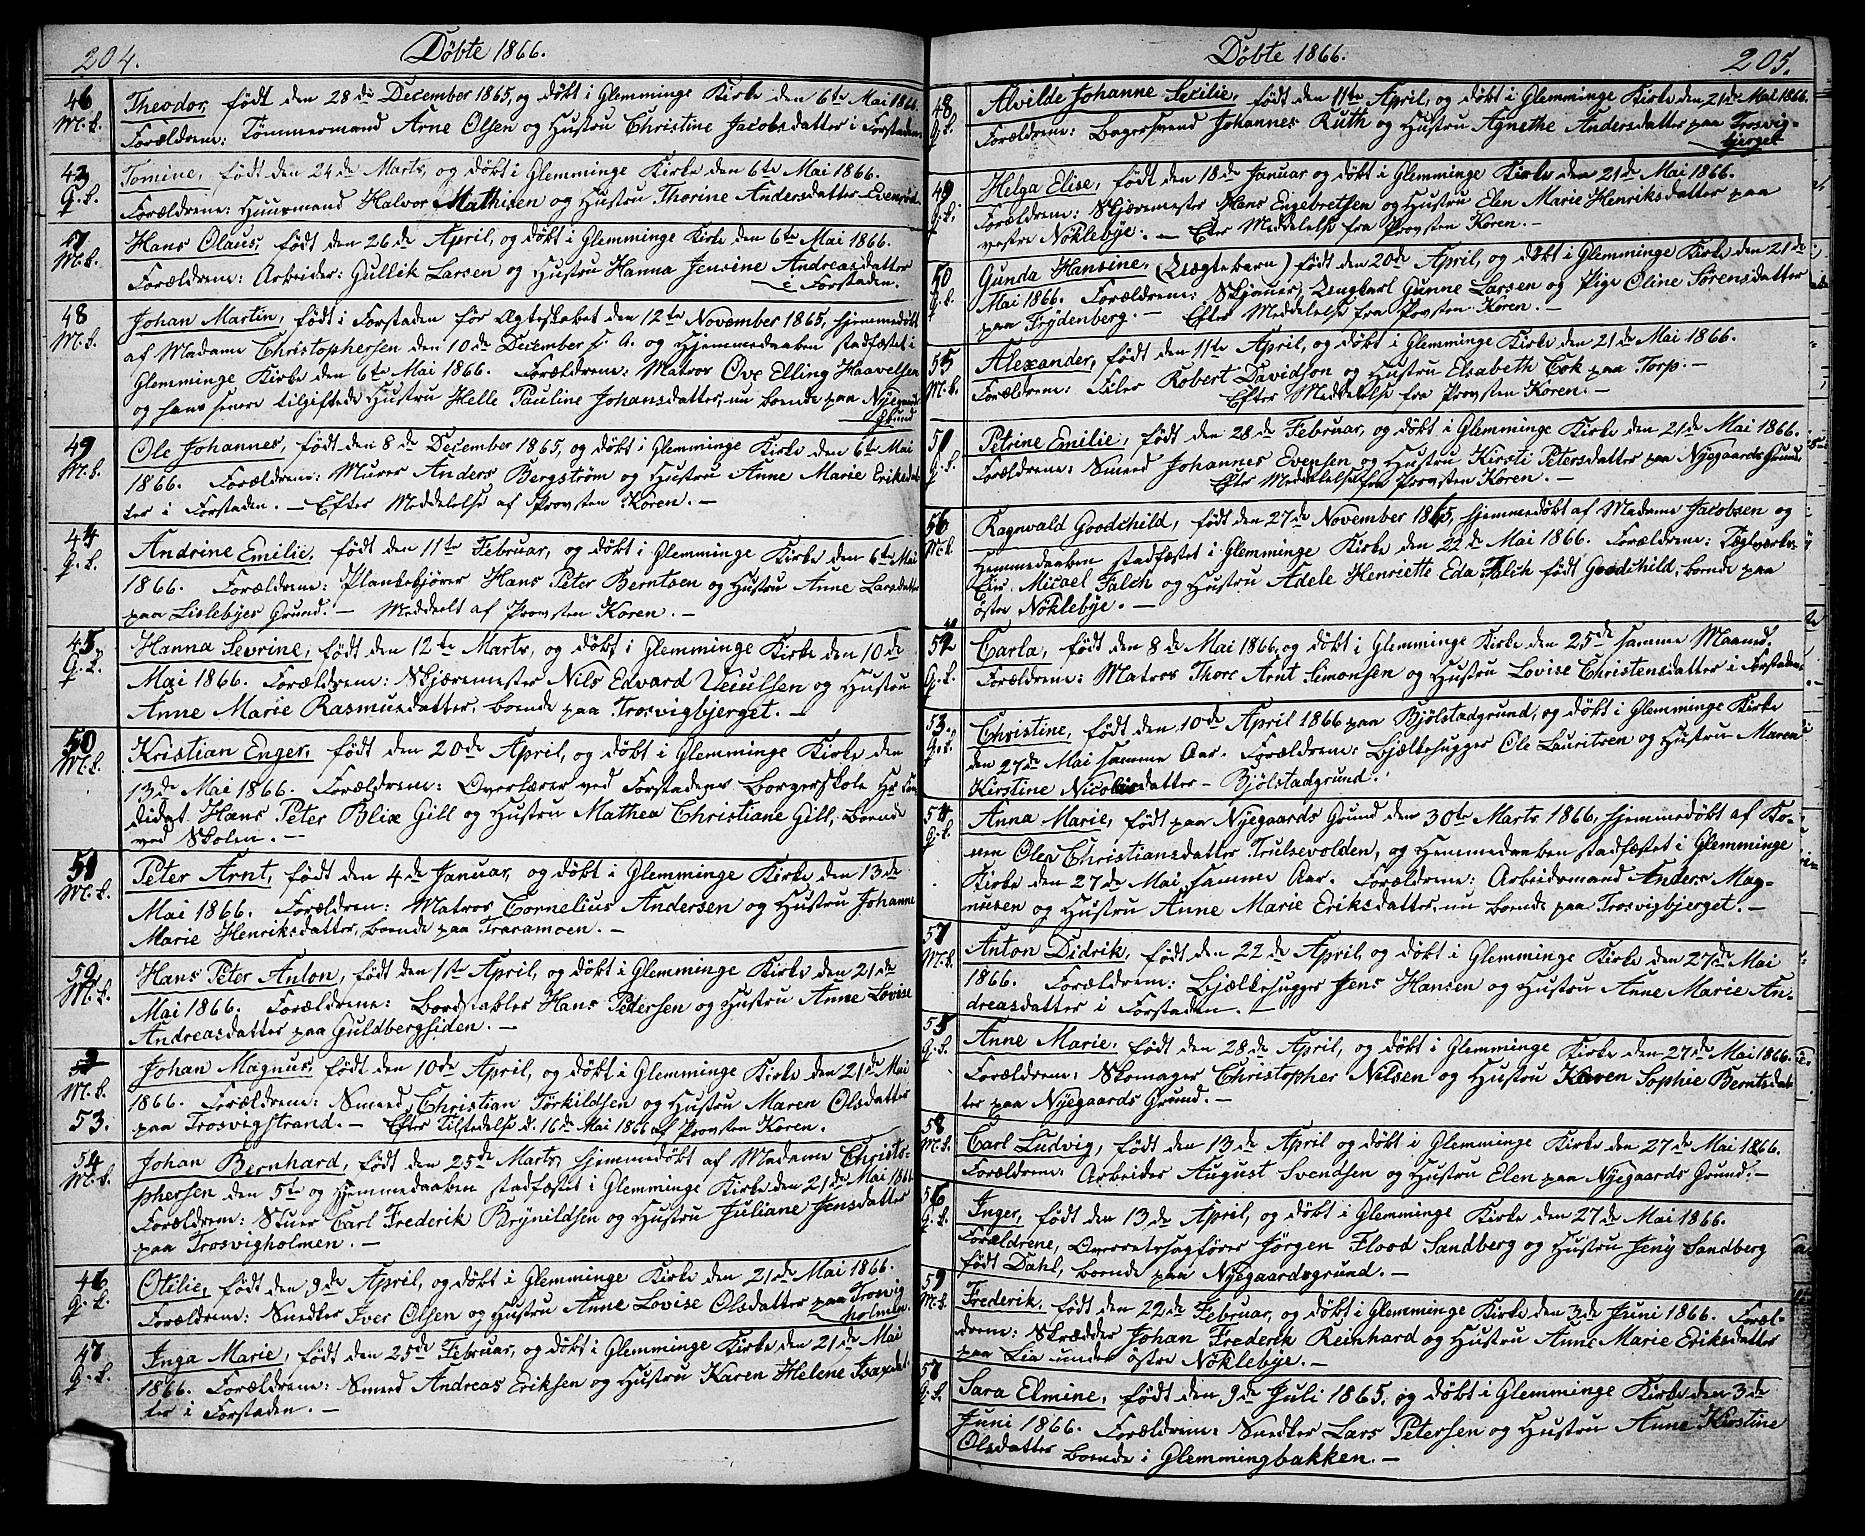 204.
Döbte 1866.
46 Theodor, født den 28de December 1865, og döbt i Glemminge Kirke den 6te Mai 1866.
M.L. Forældrene: Tömmermand Arne Olsen og Hustru Christine Jacobsdatter i Forstaden.
43 Tomine, født den 24de Marts, og döbt i Glemminge Kirke den 6te Mai 1866.
Q.L. Forældrene: Huusmand Halvor Mathisen og Hustru Thorine Andersdatter Evenröd.
47 Hans Olaus, født den 26de April, og döbt i Glemminge Kirke den 6te Mai 1866.
M.L. Forældrene: Arbeider: Gullik Larsen og Hustru Hanna Jensine Andreasdatter
i Forstaden.
48 Johan Martin, født i Forstaden før Ægteskabet den 12te November 1865, hjemmedöbt
M.L. af Madame Christophersen den 10de December s. A. og Hjemmedaaben stadfæstet i
Glemminge Kirke den 6te Mai 1866. Forældrene: Matros Ove Elling Haavelsen
og hans senere tilgiftede Hustru Helle Pauline Johansdatter, nu boende paa Nyegaards
Grund
49 Ole Johannes, født den 8de December 1865, og döbt i Glemminge Kirke den 6te Mai
M.L. 1866. Forældrene: Murer Anders Bergström og Hustru Anne Marie Eriksdat-
ter i Forstaden. — Efter Meddelelse af Provsten Koren. —
44 Andrine Emilie, født den 11te Februar, og döbt i Glemminge Kirke den 6te Mai
Q.L. 1866. Forældrene: Plankekjörer Hans Peter Berntsen og Hustru Anne Larsdatter
paa Lislebyes Grund. — Meddeelt af Provsten Koren. —
45 Hanna Sevrine, født den 12te Marts, og döbt i Glemminge Kirke den 10de
Q.L. Mai 1866. Forældrene: Skjæremester Nils Edvard Veiulsen og Hustru
Anne Marie Rasmusdatter, boende paa Trosvigbjerget. —
50 Kristian Enger, født den 20de April, og döbt i Glemminge Kirke den
M.L. 13de Mai 1866. Forældrene: Overlærer ved Forstadens Borgerskole Hr Kan
didat Hans Peter Blix Gill og Hustru Mathea Christiane Gill, boende
ved Skolen. —
51 Peter Arnt, født den 4de Januar, og döbt i Glemminge Kirke den 13de
M.L. Mai 1866. Forældren: Matros Cornelius Andersen og Hustru Johanne
Marie Henriksdatter, boende paa Traramoen. —
52 Hans Peter Anton, født den 1ste April, og döbt i Glemminge Kirke den 21de
M.L. Mai 1866. Forældrene: Bordstabler Hans Petersen og Hustru Anne Lovise
Andreasdatter paa Guldbergsiden. —
Johan Magnus, født den 10de April, og döbt i Glemminge Kirke den 21de Mai
M.L. 1866. Forældrene: Smed Christian Törkildsen og Hustru Maren Olsdatter
53. paa Trosvigstrand. — Efter Tilstedelse d. 16de Mai 1866 af Provsten Koren.
54 Johan Bernhard, født den 25de Marts, hjemmedöbt af Madame Christo-
M.L. phersen den 5te og Hjemmedaaben stadfæstet i Glemminge Kirke den 21de Mai 1866
Forældrene: Stuer Carl Frederik Brynildsen og Hustru Juliane Jensdatter
paa Trosvigholmen. —
46 Otilie, født den 9de April, og döbt i Glemminge Kirke den 21de Mai 1866.
Q.L. Forældrene: Snedker Iver Olsen og Hustru Anne Lovise Olsdatter paa Trosvig
holmen.
47 Inga Marie, født den 25de Februar, og döbt i Glemminge Kirke den 21de Mai
Q.L. 1866. Forældrene: Smed Andreas Eriksen og Hustru Karen Helene Isaxdat-
ter i Forstaden. —
Döbte 1866.
205.
48 Alvilde Johanne Secilie, født den 11te April, og döbt i Glemminge Kirke den 21de Mai 1866
Q.L. Forældrene: Bagersvend Johannes Ruth og Hustru Agnethe Andersdatter paa Trosvig-
bjerget
49 Helga Elise, født den 18de Januar og döbt i Glemminge Kirke den 21de Mai 1866.
Q.L. Forældrene: Skjæremester Hans Engebretsen og Hustru Elen Marie Henriksdatter paa
vestre Nöklebye. — Efter Meddelelse fra Provsten Koren. —
50 Gunda Hansine, (Uægtebarn) født den 20de April, og döbt i Glemminge Kirke den 21de
Q.L. Mai 1866. Forældrene: Skjöner, Ungkarl Gunne Larsen og Pige Oline Sörensdatter
paa Frydenberg. — Efter Meddelelse fra Provsten Koren. —
55 Alexander, født den 11te April, og döbt i Glemminge Kirke den 21de Mai 1866.
M.L. Forældrene: Filer Robert Davidson og Hustru Elsabeth Cok paa Torp. —
Efter Meddelelse fra Provsten Koren. —
51 Petrine Emilie, født den 28de Februar, og döbt i Glemminge Kirke den 21de Mai 1866.
Q.L. Forældrene: Smed Johannes Evensen og Hustru Kirsti Petersdatter paa Nyegaards Grund,
Efter Meddelelse fra Provsten Koren. —
56 Ragnvald Goodchild, født den 27de November 1865, hjemmedöbt af Madame Jacobsen og
M.L. Hjemmedaaben stadfæstet i Glemminge Kirke den 22de Mai 1866. Forældrene: Teglværks-
Eier Micael Falch og Hustru Adele Henriette Eda Falch født Goodchild, boende paa
östre Nöklebye. —
52 Carla, født den 8de Mai 1866, og döbt i Glemminge Kirke den 25de samme Maaned,
Q.L. Forældrene: Matros Thore Arnt Simonsen og Hustru Lovise Christensdatter i Forstaden
53. Christine, født den 10de April 1866 paa Bjölstadgrund, og döbt i Glemminge Kirke
Q.L. den 27de Mai samme Aar. Forældrene: Bjelkehugger Ole Lauritsen og Hustru Maren
Kirstine Nicolaisdatter — Bjölstadgrund.
54 Anna Marie, født paa Nyegaards Grund den 30te Marts 1866, hjemmedöbt af Ko-
Q.L. nen Olea Christiansdatter Trulsevolden, og Hjemmedaaben stadfæstet i Glemminge
Kirke den 27de Mai samme Aar. Forældrene: Arbeidsmand Anders Mag-
nusen og Hustru Anne Marie Eriksdatter, nu boende paa Trosvigbjerget. —
57 Anton Didrik, født den 22de April, og döbt i Glemminge Kirke den 27de Mai
M.L. 1866. Forældrene: Bjælkehugger Jens Hansen og Hustru Anne Marie An-
dreasdatter i Forstaden. —
55 Anne Marie, født den 28de April, og döbt i Glemminge Kirke den 27de Mai 1866.
Q.L. Forældrene: Skomager Christopher Nilsen og Hustru Karen Sophie Berntsdat
ter paa Nyegaards Grund. —
58 Carl Ludvig, født den 13de April og döbt i Glemminge Kirke den 27de Mai 1866.
M.L. Forældrene: Arbeider August Svendsen og Hustru Elen paa Nyegaards Grund. —
56 Inger, født den 13de April, og döbt i Glemminge Kirke den 27de Mai 1866.
Q.L. Forældrene, Overretssagfører Jörgen Flood Sandberg og Hustru Jeny Sandberg
født Dahl, boende paa Nyegaardsgrund. —
59 Frederik, født den 22de Februar, og döbt i Glemminge Kirke den 3de Juni 1866. Foræl-
M.L. drene: Skrædder Johan Frederik Reinhard og Hustru Anne Marie Eriksdatter
paa Lia under östre Nöklebye. —
57 Sara Elmine, født den 9de Juli 1865, og döbt i Glemminge Kirke den 3de
Q.L. Juni 1866. Forældrene: Snedker Lars Petersen og Hustru Anne Kirstine
Olsdatter boende i Glemmingbakken. —